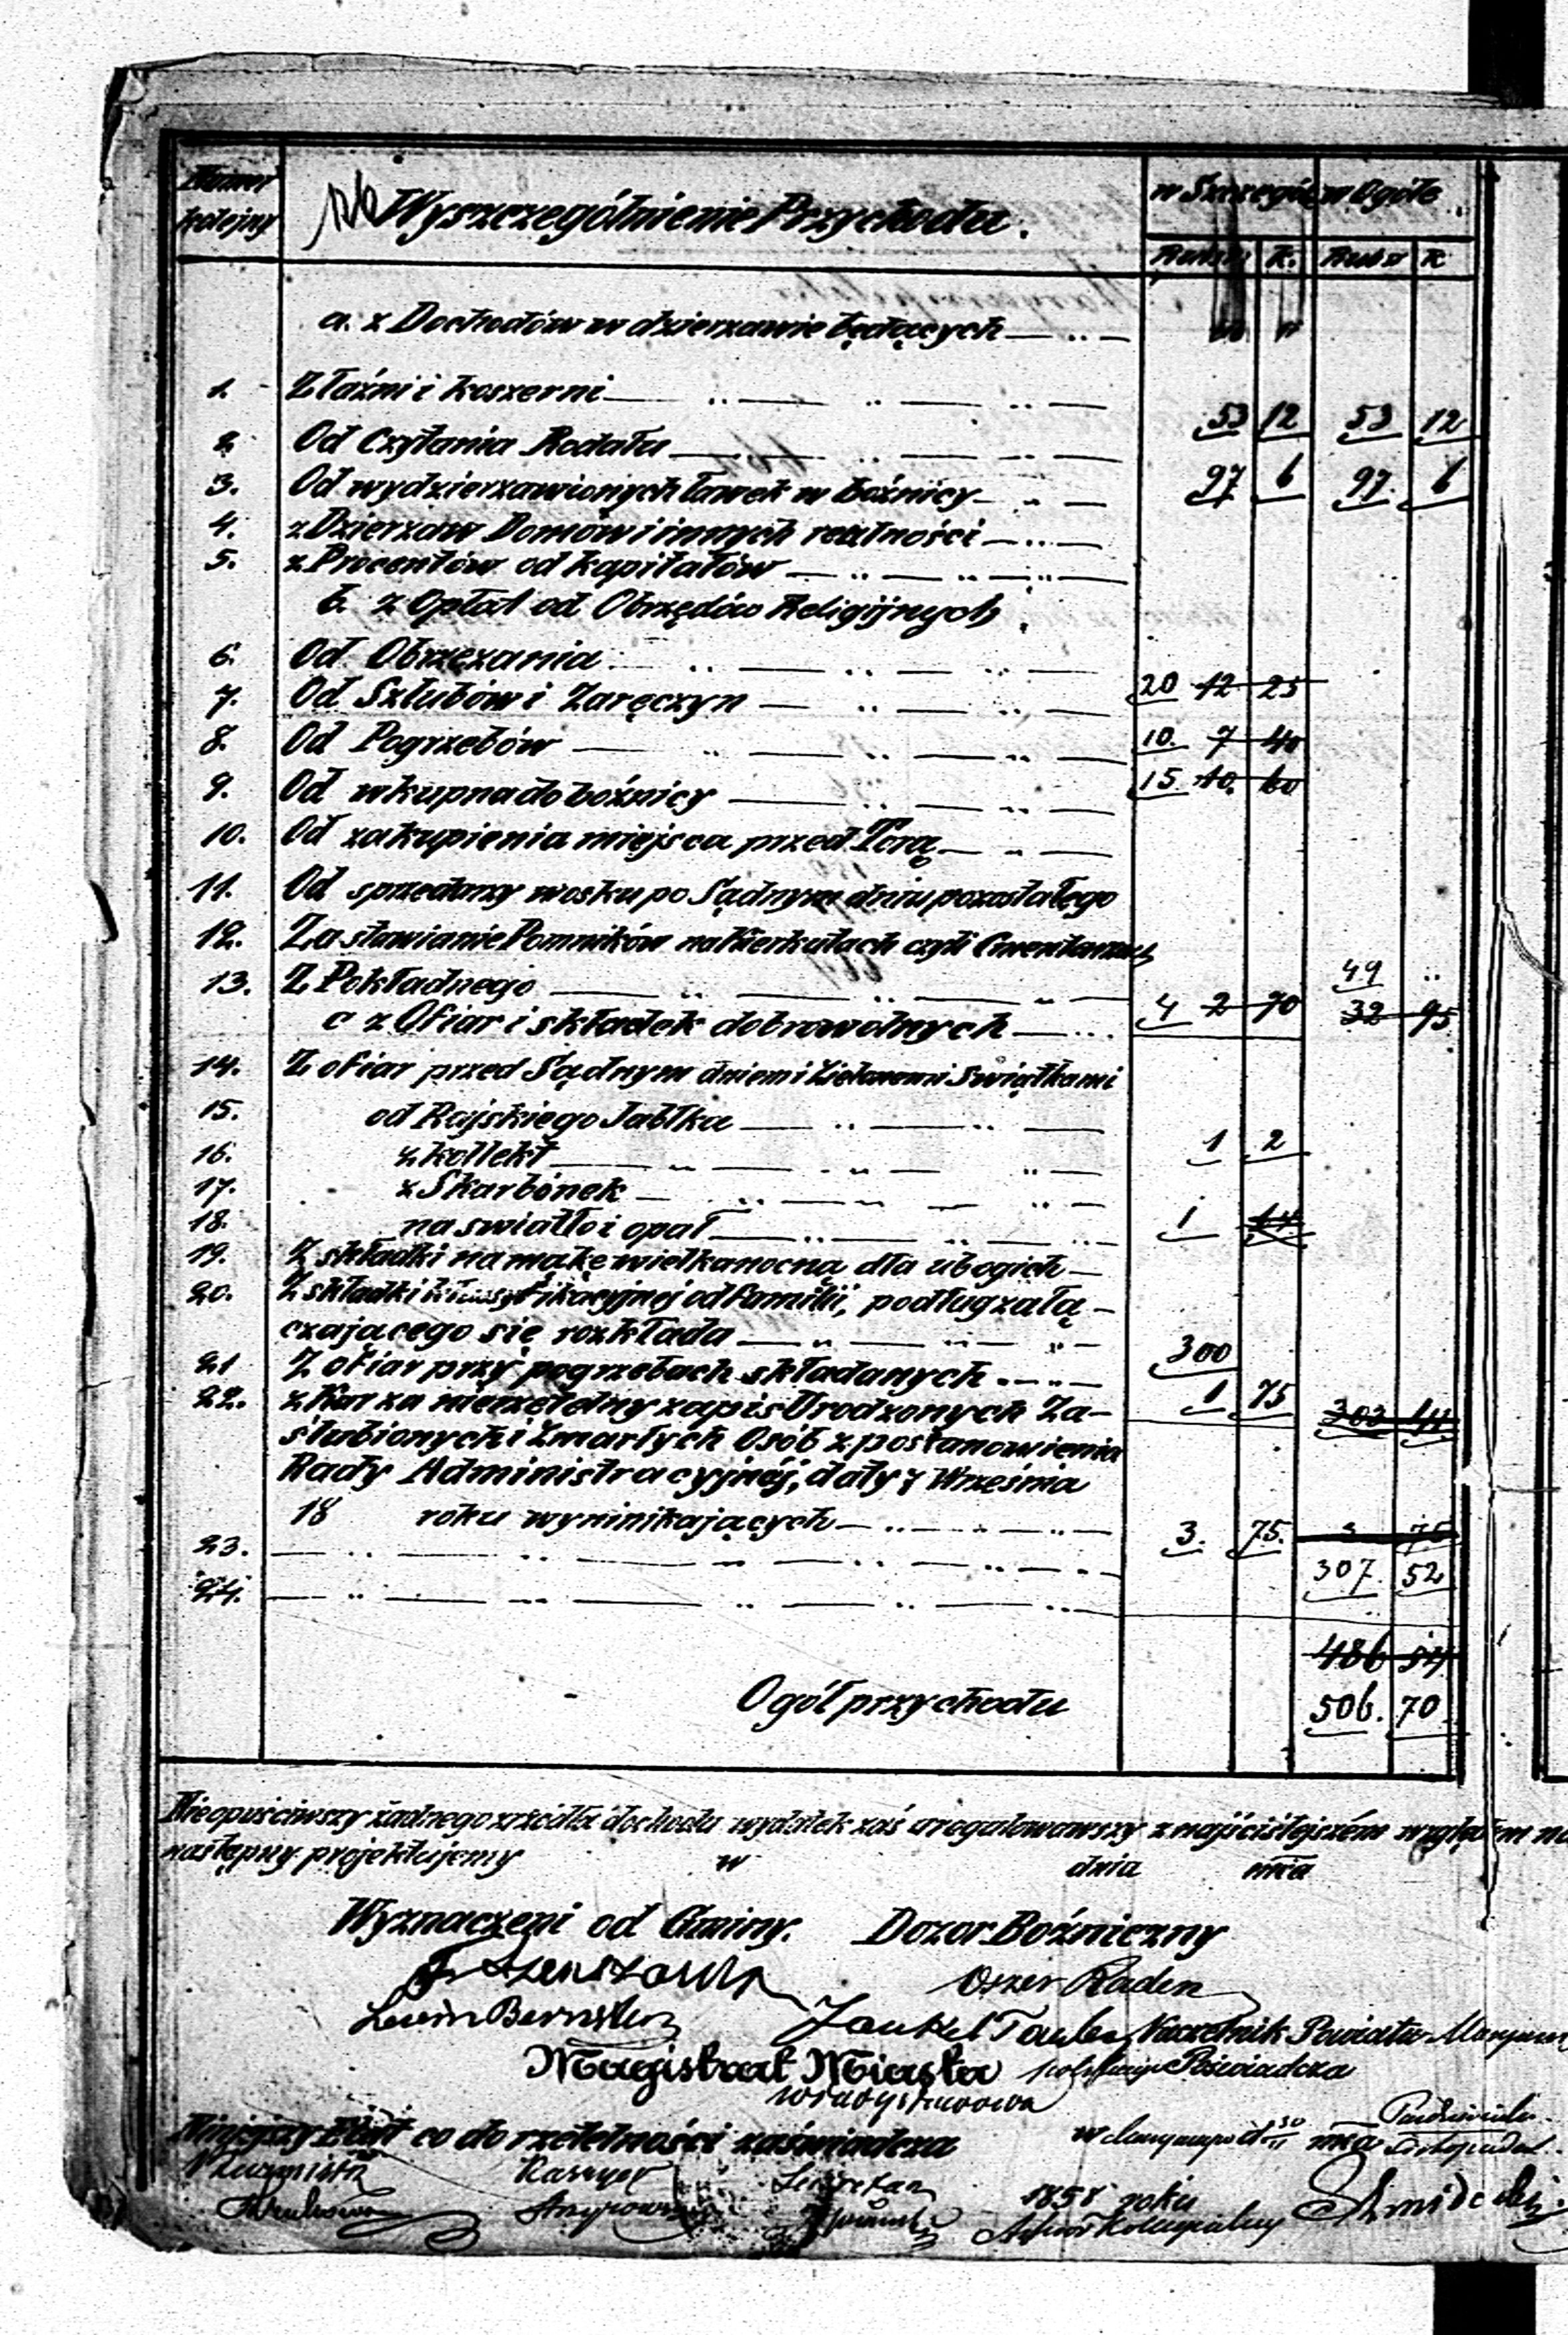 Numer kolejny Wyszczególnienie Przychodu. w Szczególe w Ogóle
Rubsr K. Rubsr K
a. z Dochodów w dzierzawie będących
1. Z łaźni i koszerni 53 12 53 12
2. Od Czytania Rodału
3. Od wydzierzawionych ławek w bożnicy 97 6 97. 6
4. z Dzierzaw Domów i innych realności
5. z Procentów od kapitałów
b. z Opłat od Obrzędów Religijnych
6. Od Obrzezania 20 12 25
7. Od Szlubów i Zaręczyn
8. Od Pogrzebów 10. 7 40
9. Od wkupna do bożnicy 15. 10. 60
10. Od zakupienia miejsca przed Torą
11. Od sprzedarzy wosku po Sądnym dniu pozostałego
12. Za stawianie Pomników na Kierkutach czyli Cmentarzach
13. Z Pokładnego 49 ..
c z Ofiar i składek dobrowolnych 4 2 70 32 95
14. Z ofiar przed Sądnym dniem i Zielonemi Swiątkami
15. od Rajskiego Jabłka
16. z kollekt 1 2
17. z Skarbónek
18. na swiatło i opał 1
19. Z składki na mąkę wielkanocną dla ubogich
20. Z składki klassyfikacyjnéj od familii, podług załą-
czającego się rozkładu 300
21 Z ofiar przy pogrzebach składanych
22. z Kar za nierzetelny zapis Urodzonych Za- 1 75 303 14
slubionych i Zmarłych Osób z postanowienia
Rady Administracyjnéj, daty 7 Wrzesnia
18 roku wyninikających 3. 75. 3 75
23. 307. 52
24.
486 54
Ogół przychodu 506. 70
Nieopuściwszy żadnego zrzódła dochodu wydatek zaś uregulowawszy z najściślejszém względem na
następny projektujemy w dnia mca
Wyznaczeni od Gminy. Dozor Boźniczny
Oszer Raden
Lewin Bernstein Jankel Naczelnik Powiatu
Magistrat Miasta Poświadcza
Władysławowa
Niniejszy Etat co do rzetelności zaświadcza w mca
Burmistrz Kassyer Sekretarz
1858 roku